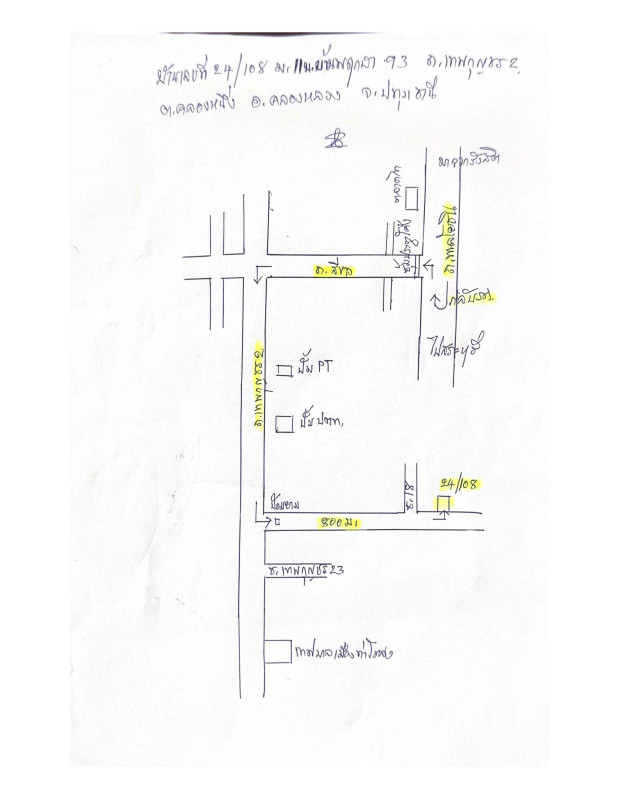 บ้านเลขที่ 24/108 ม.11 ม.บ้านพฤกษา 93 ถ.เทพกุญชร 2
ต.คลองหนึ่ง อ.คลองหลวง จ.ปทุมธานี
มาจากรังสิต
ถ.พหลโยธิน
ถ.
กลับรถ
ไปสระบุรี
ถ.เทพกุญชร 2
ปั๊ม PT
ปั๊ม ปตท.
24/108
ซ.18
ป้อมยาม
800 ม.
ซ.เทพกุญชร 23
เทศบาลเมืองท่าโขลง